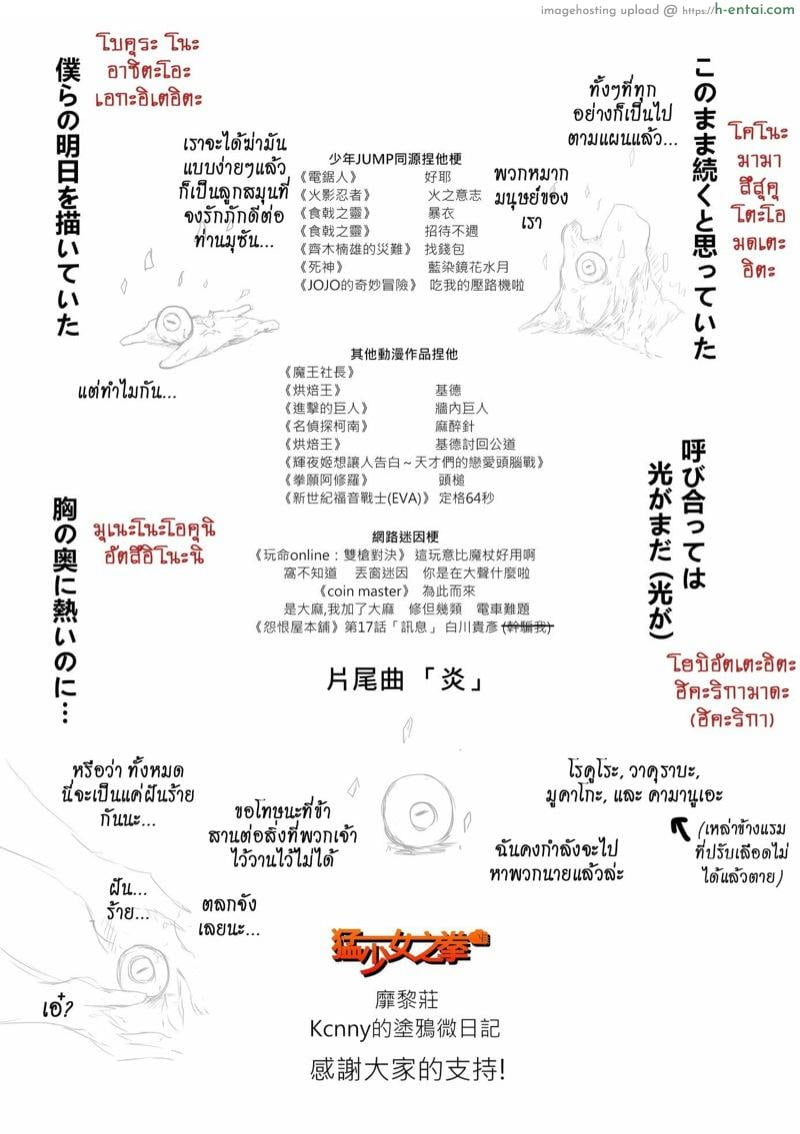 imagehosting upload @ https://h-entai.com
โบคุระ โนะ
อาชิตะโอะ
เอกะอิเตอิตะ
僕らの明日を描いていた
เราจะได้ฆ่ามัน
แบบง่ายๆแล้ว
ก็เป็นลูกสมุนที่
จงรักภักดีต่อ
ท่านมุซัน...
ทั้งๆที่ทุก
อย่างก็เป็นไป
ตามแผนแล้ว...
พวกหมาก
มนุษย์ของ
เรา
このまま続くと思っていた
โคโนะ
มามา
สึสุคุ
โตะโอ
มดเตะ
อิตะ
少年JUMP同源捏他梗
《電鋸人》 好耶
《火影忍者》 火之意志
《食戟之靈》 暴衣
《食戟之靈》 招待不週
《齊木楠雄的災難》 找錢包
《死神》 藍染鏡花水月
《JOJO的奇妙冒險》 吃我的壓路機啦
แต่ทำไมกัน...
其他動漫作品捏他
《魔王社長》
《烘焙王》 基德
《進擊的巨人》 牆內巨人
《名偵探柯南》 麻醉針
《烘焙王》 基德討回公道
《輝夜姬想讓人告白～天才們的戀愛頭腦戰》
《拳願阿修羅》 頭槌
《新世紀福音戰士(EVA)》 定格64秒
呼び合っては
光がまだ (光が)
胸の奥に熱いのに…
มุเนะโนะโอคุนิ
อัตสึอิโนะนิ
網路迷因梗
《玩命online：雙槍對決》 這玩意比魔杖好用啊
窩不知道 丟窗迷因 你是在大聲什麼啦
《coin master》 為此而來
是大麻,我加了大麻 修但幾類 電車難題
《怨恨屋本舗》第17話「訊息」 白川貴彥 (幹騙我)
โยบิอัตเตะฮิตะ
ฮิคะริกามาดะ
(ฮิคะริกา)
片尾曲 「炎」
หรือว่า ทั้งหมด
นี่จะเป็นแค่ฝันร้าย
กันนะ...
ขอโทษนะที่ข้า
สานต่อสิ่งที่พวกเจ้า
ไว้วานไว้ไม่ได้
โรคุโระ, วาคุราบะ,
มูคาโกะ, และ คามานูเอะ
(เหล่าข้างแรม
ที่ปรับเลือดไม่
ได้แล้วตาย)
ฉันคงกำลังจะไป
หาพวกนายแล้วล่ะ
ฝัน...
ร้าย...
ตลกจัง
เลยนะ...
เอ๋?
猛少女之拳
靡黎莊
Kcnny的塗鴉微日記
感謝大家的支持!